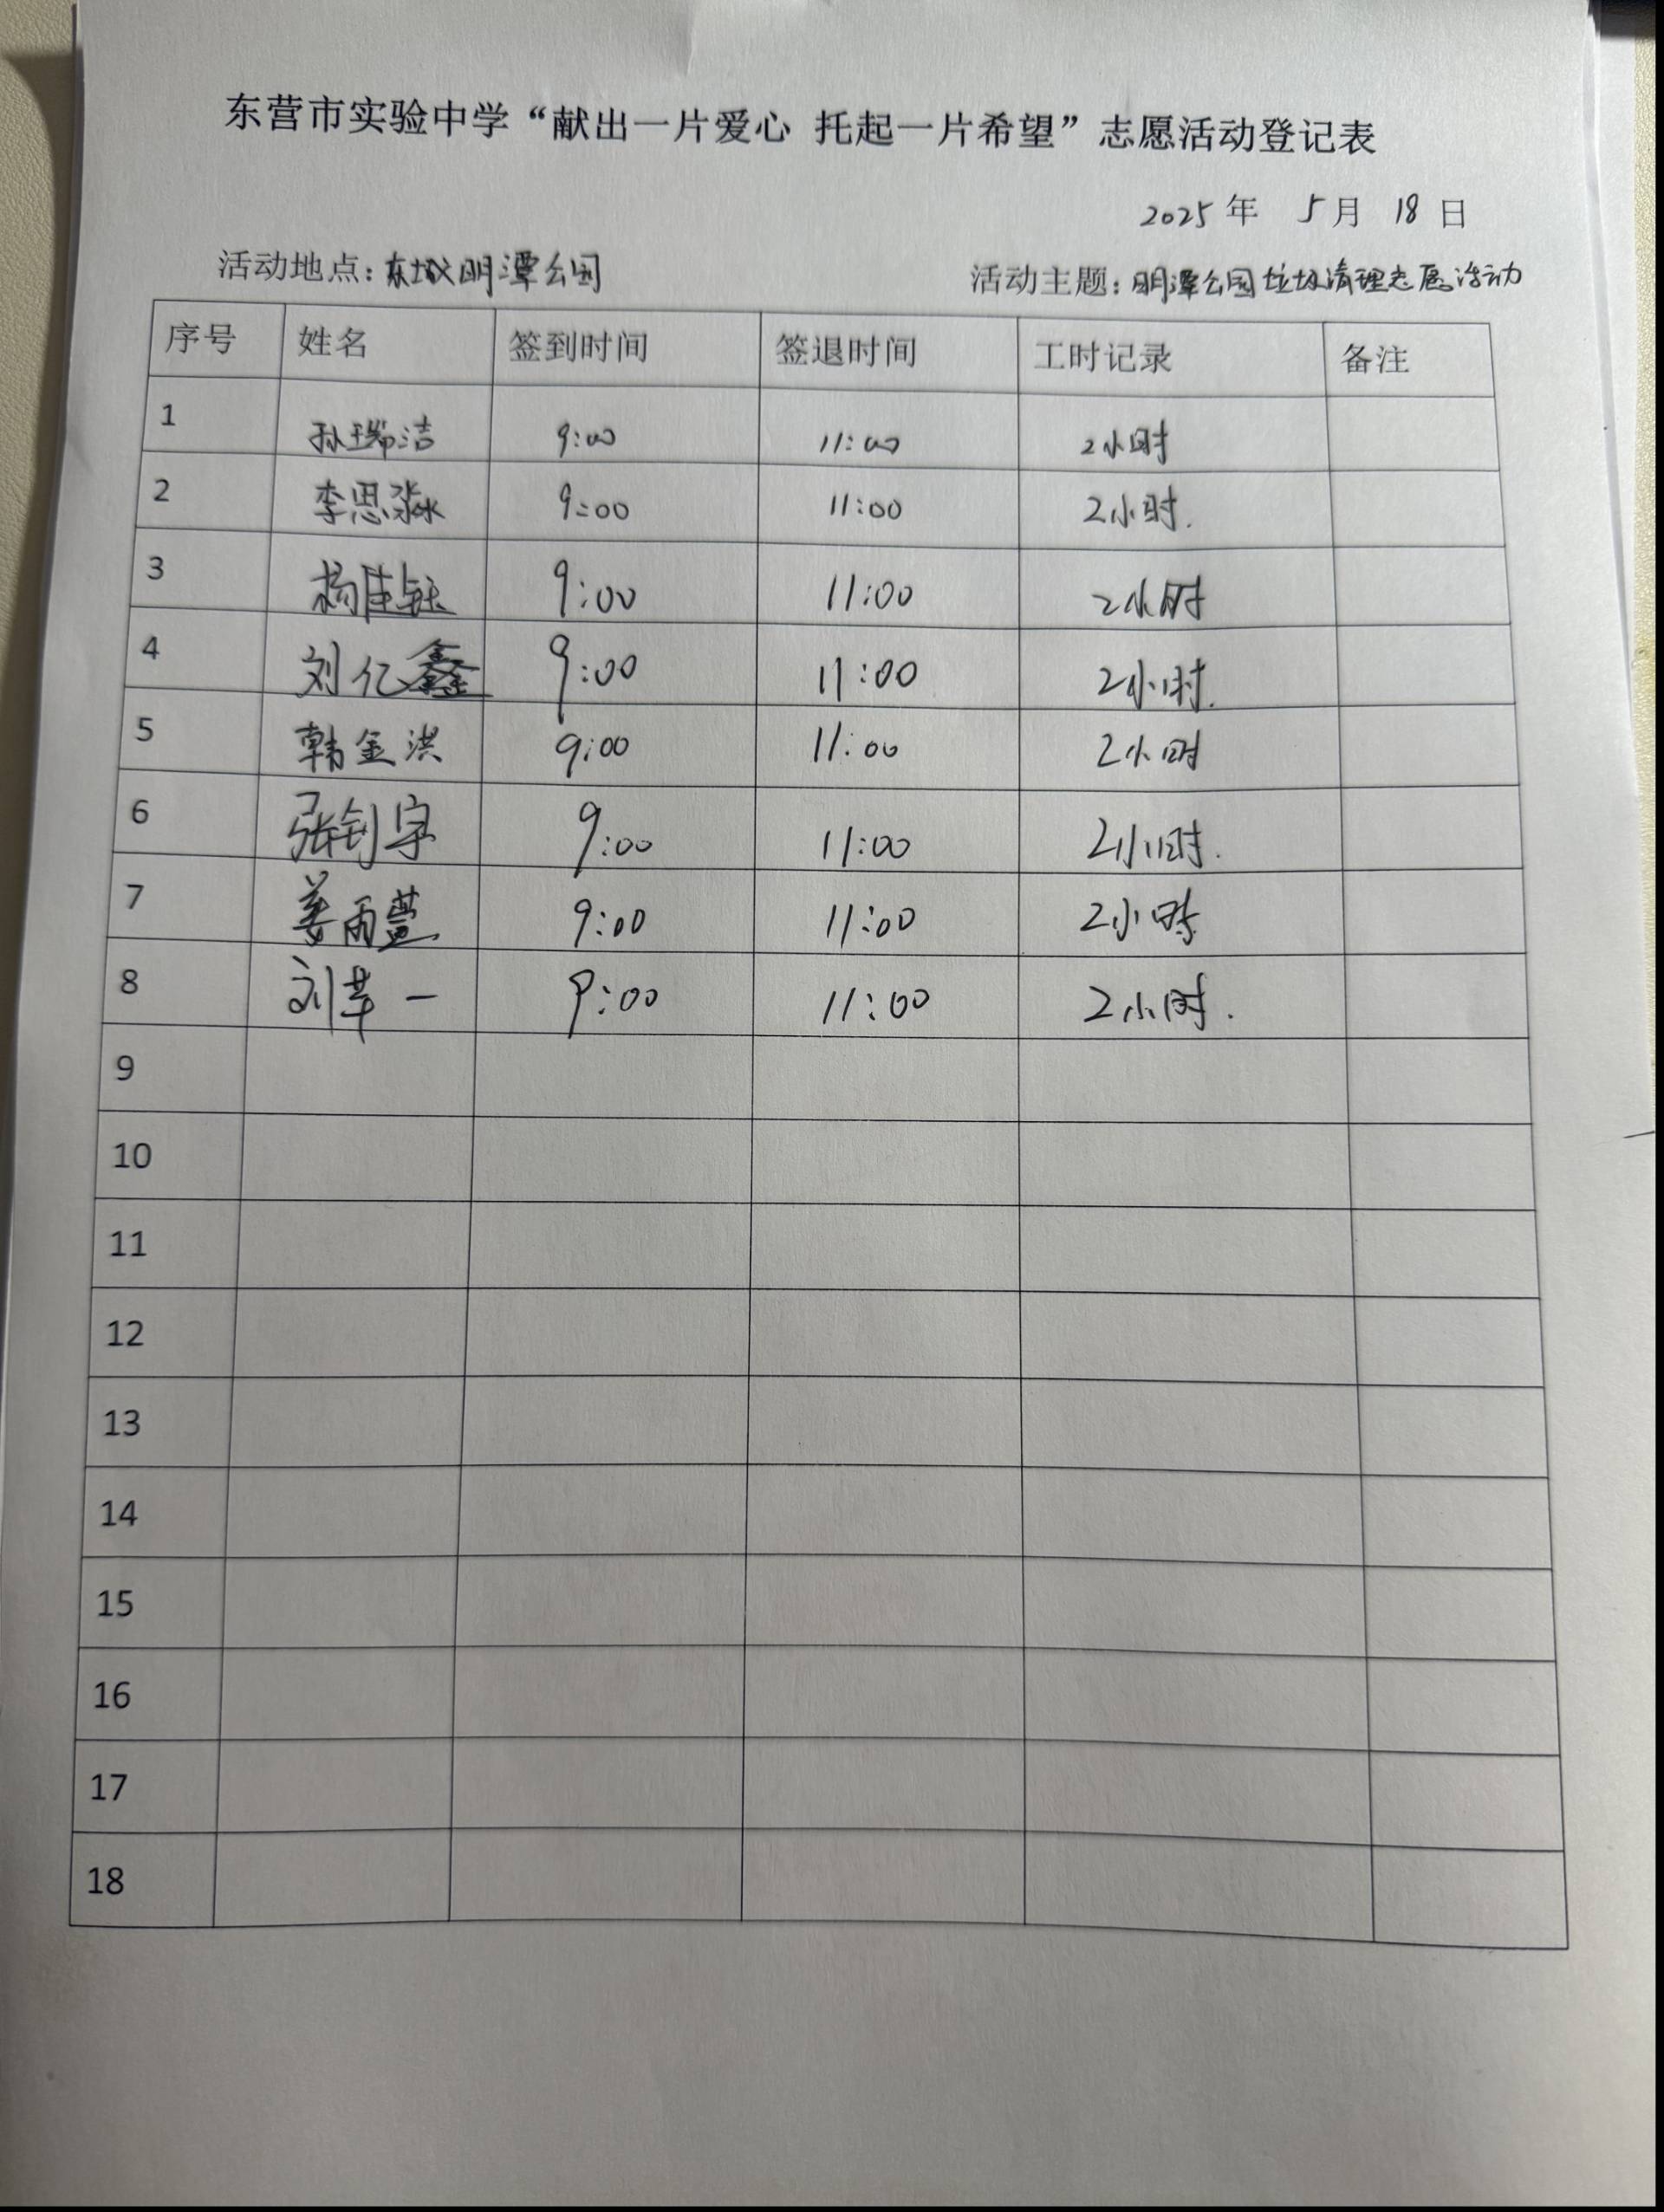 东营市实验中学“献出一片爱心 托起一片希望”志愿活动登记表
2025年 5月 18日
活动地点：东城明潭公园 活动主题：明潭公园垃圾清理志愿活动
序号 姓名 签到时间 签退时间 工时记录 备注
1 孙瑞洁 9:00 11:00 2小时
2 李思淼 9:00 11:00 2小时.
3 杨佳钰 9:00 11:00 2小时
4 刘亿鑫 9:00 11:00 2小时.
5 韩金洪 9:00 11:00 2小时
6 张钊宇 9:00 11:00 2小时.
7 姜雨萱 9:00 11:00 2小时
8 刘莘一 9:00 11:00 2小时.
9
10
11
12
13
14
15
16
17
18